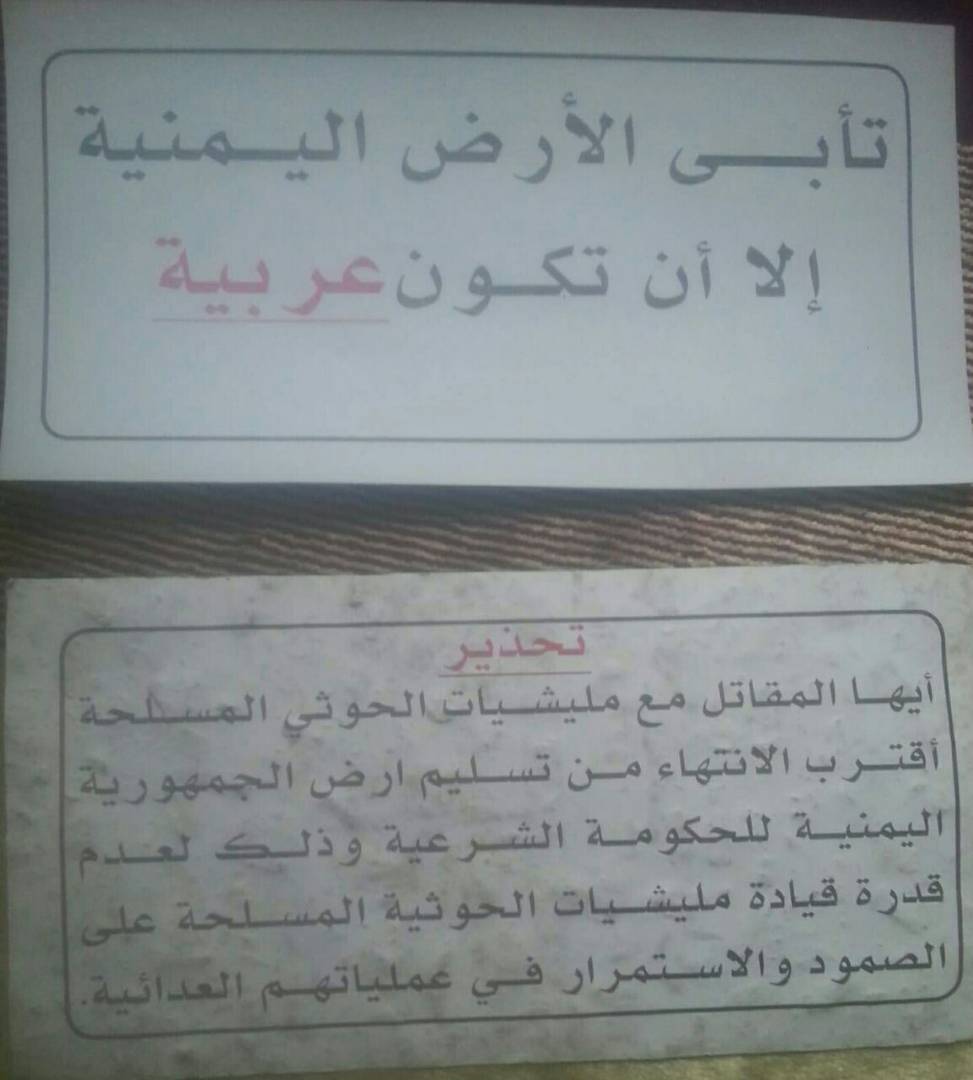 تأبى الأرض اليمنية
إلا أن تكون عربية
تحذير
أيها المقاتل مع مليشيات الحوثي المسلحة
أقترب الانتهاء من تسليم ارض الجمهورية
اليمنية للحكومة الشرعية وذلك لعدم
قدرة قيادة مليشيات الحوثية المسلحة على
الصمود والاستمرار في عملياتهم العدائية.